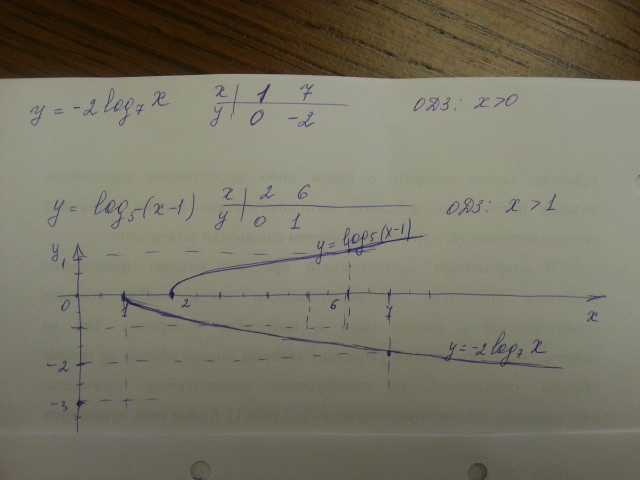 y = -2 log₇ x
x | 1 7
y | 0 -2
ОДЗ: x>0
y = log₅ (x-1)
x | 2 6
y | 0 1
ОДЗ: x>1
y
1
y=log₅(x-1)
0 1 2 6 7 x
-2
y=-2log₇ x
-3